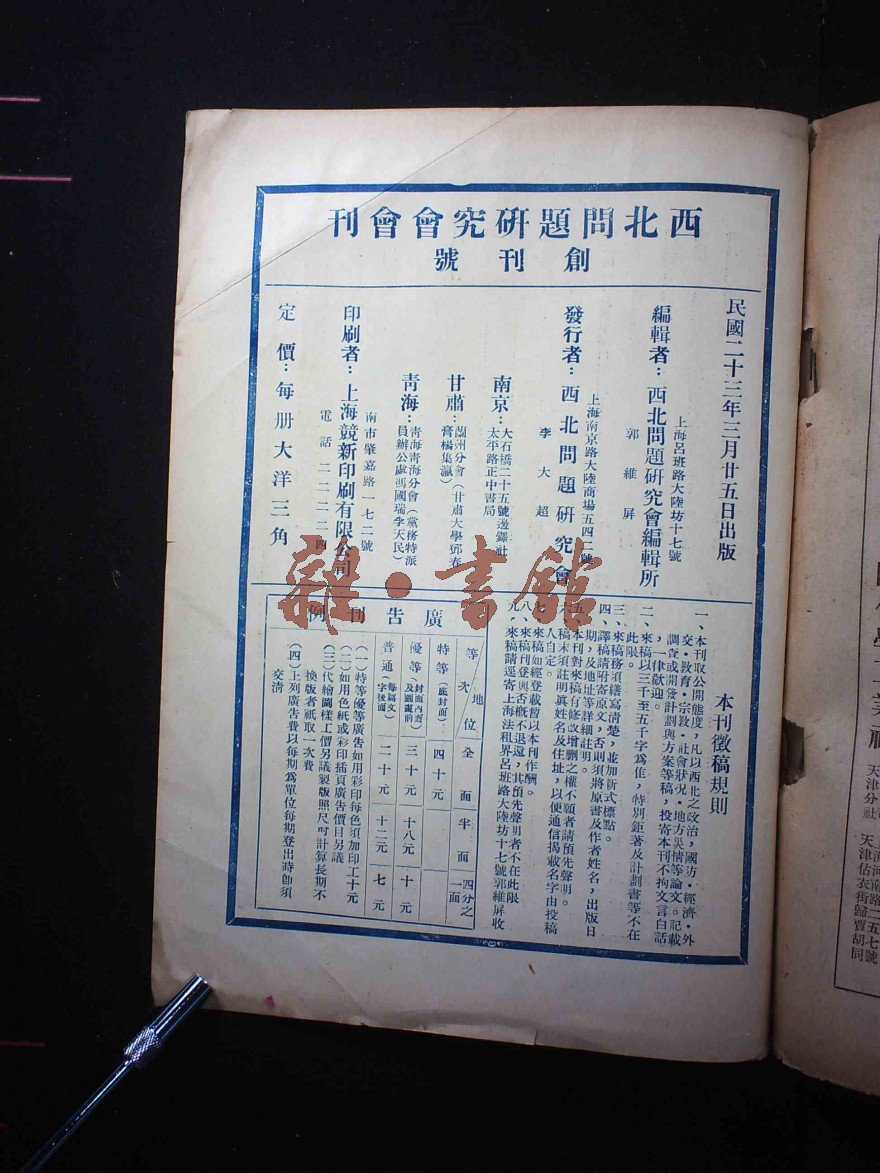 西北問題研究會會刊
創刊號
民國二十三年三月廿五日出版
編輯者：西北問題研究會編輯所
上海呂班路大陸坊十七號
郭維屏
發行者：西北問題研究會
上海南京路大陸商場五四二號
李大超
南京：大石橋二十五號邊鐸社
太平路正中書局
甘肅：蘭州分會（甘肅大學鄧春
膏楊集瀛）
青海：青海青海分會（黨務特派
員辦公處馮國瑞李天民）
印刷者：上海競新印刷有限公司
南市肇嘉路一七二號
電話二二二二四
定價：每册大洋三角
本刊徵稿規則
一、本刊取公開態度，凡以西北之政治，國防·經濟·外
交·教育·宗教·社會狀况·地方災情等論文。記載
調查或開發計劃與方案等稿，投寄本刊不拘文言白話
，一律歡迎。
二、來稿以三千至五千字爲佳，特別鉅著及計劃書等不在
此限。
三、來稿務須繕寫清楚，並加新式標點。
四、譯稿請附寄原文，否則須將原書及作者姓名，出版日
期，及地址等詳細註明。
五、本刊對來稿有修改增删之權不願者請預先聲明。
六、稿末須註明真姓名及住址，以便通信揭載名字由投稿
人自定。
七、來稿如經登載暫以本刊作酬。
八、來稿刊登與否概不退還，其預先聲明者不在此限
九、來稿請逕寄上海法租界呂班路大陸坊十七號郭維屏收
廣告刊例
等次 地位 全面 半面 四分之一面
特等（底封面） 四十元
優等（封面內面及圖畫前） 三十元 十八元 十元
普通（每篇文字後面） 二十元 十二元 七元
（一）特等優等廣告如用彩印每色須加印工十元
（二）如用色紙或彩印插頁廣告價目另議
（三）代繪圖樣工價另議製版照尺吋計算長期不
換版者祇取一次費
（四）上列廣告費以每期爲單位每期登出時卽須
交清
雜·書館
天津分社
天津估衣街歸賈胡同
上海河南路二五七號